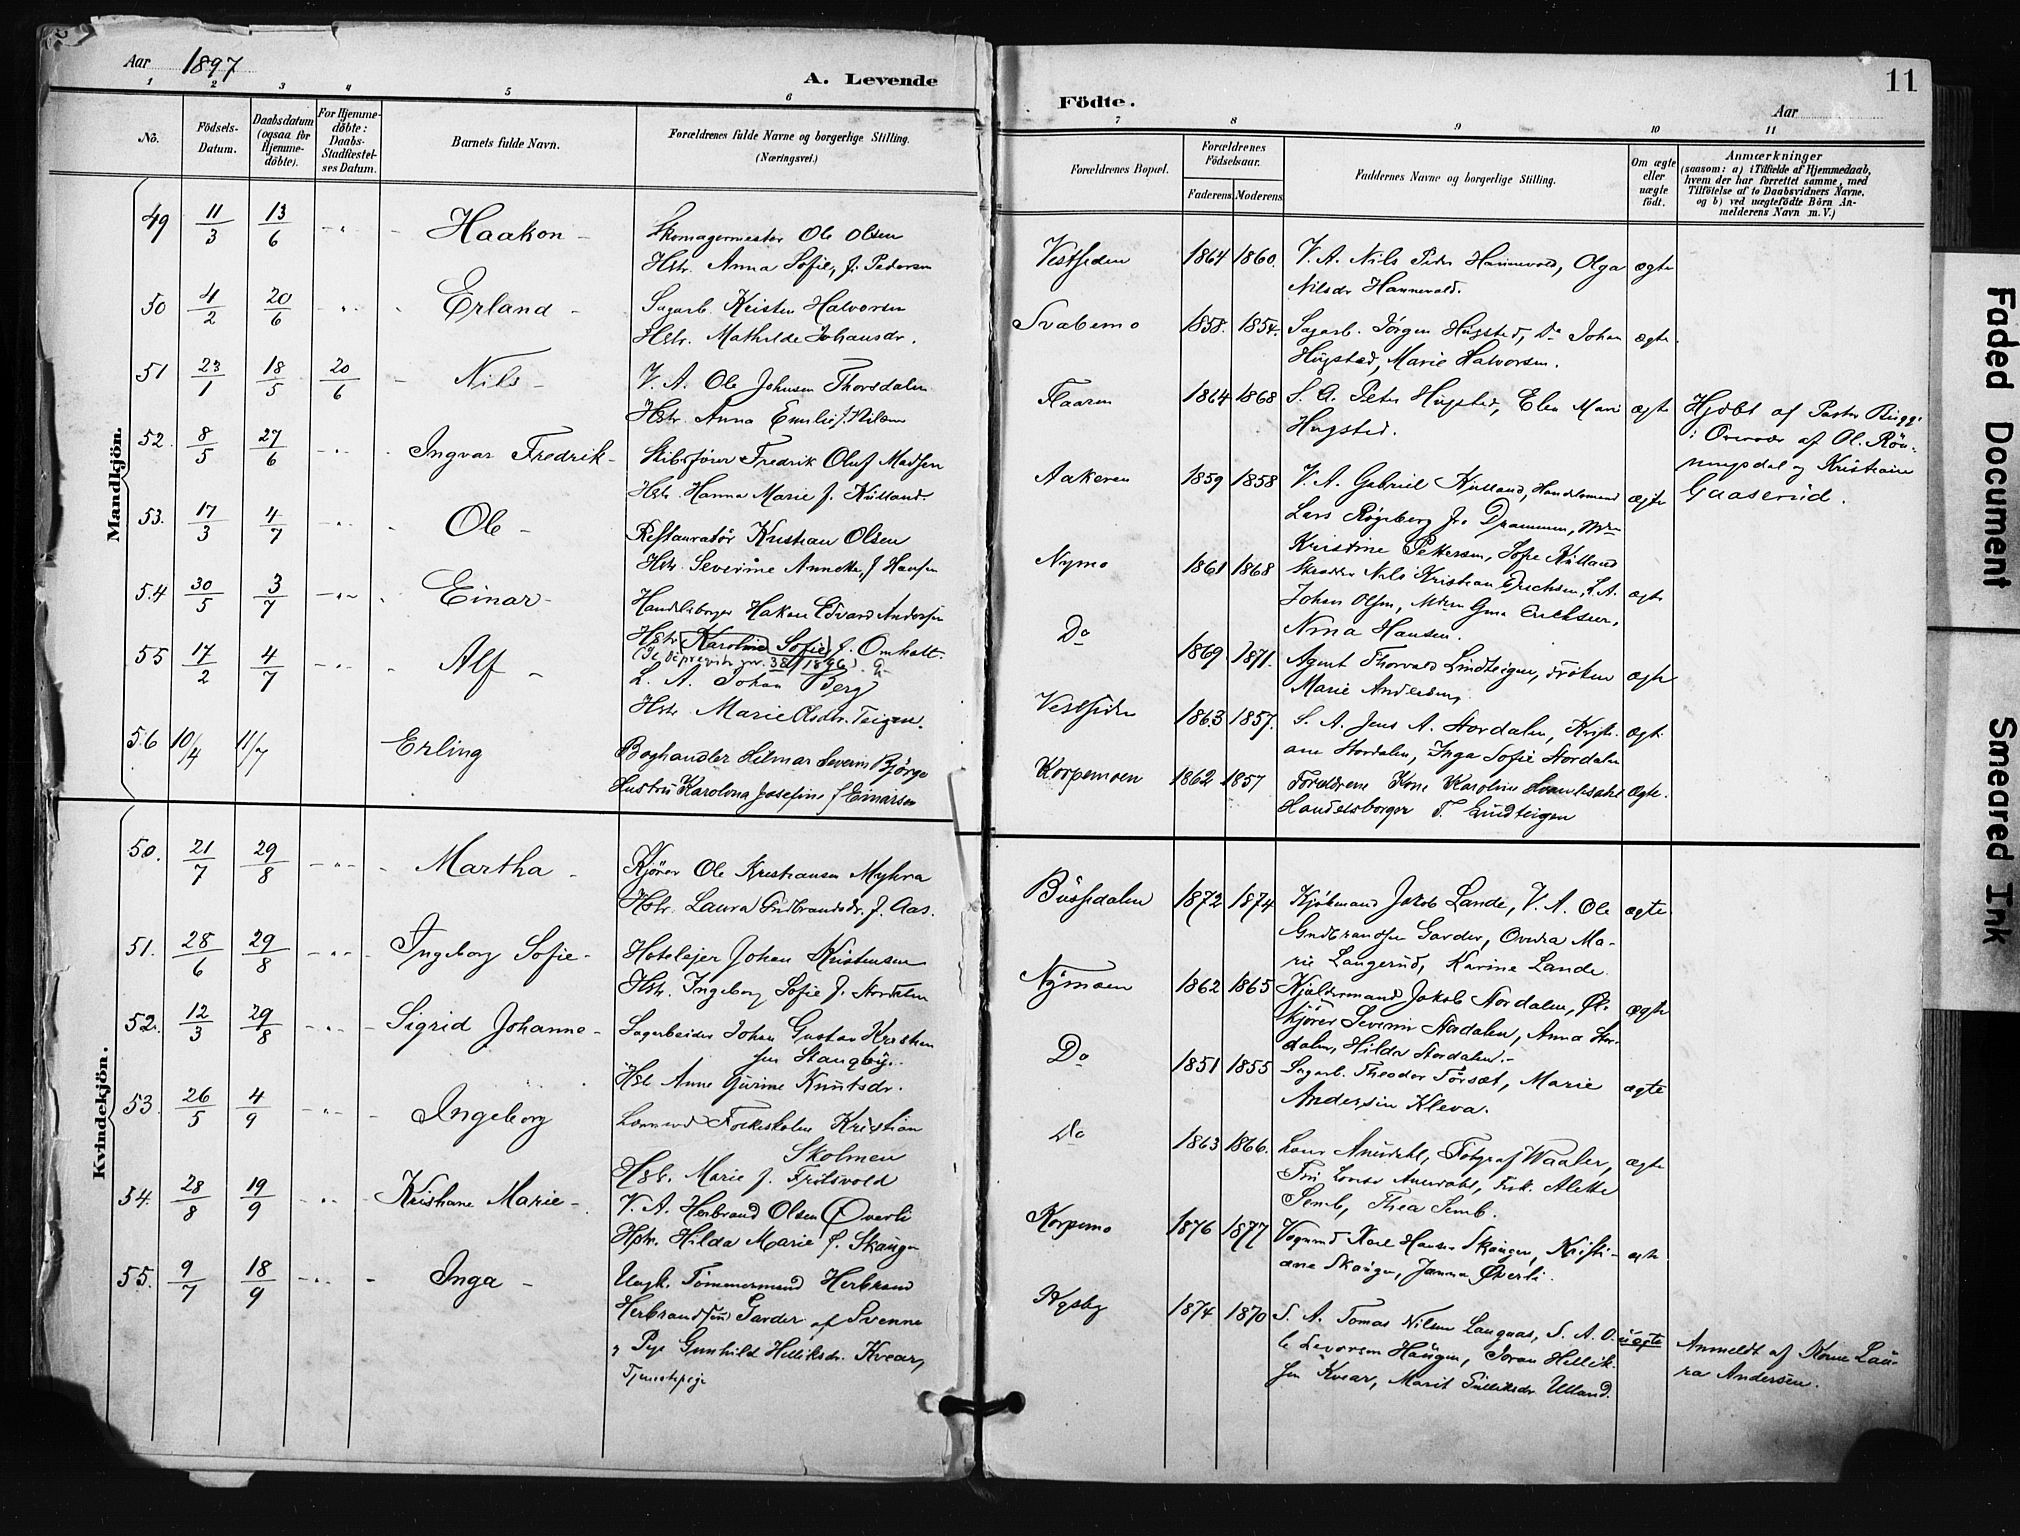 Aar 1897
A. Levende
Födte.
Aar
11
1 2 3 4 5 6 7 8 9 10 11
No.
Födsels-
Datum.
Daabsdatum
(ogsaa for
Hjemme-
döbte).
For Hjemme-
döbte:
Daabs-
Stadfæstel-
ses Datum.
Barnets fulde Navn.
Forældrenes fulde Navne og borgerlige Stilling.
(Næringsvei.)
Forældrenes Bopæl.
Forældrenes
Födselsaar.
Faderens. Moderens.
Faddernes Navne og borgerlige Stilling.
Om ægte
eller
uægte
födt.
Anmærkninger
(saasom: a) i Tilfælde af Hjemmedaab,
hvem der har forrettet samme, med
Tilföielse af to Daabsvidners Navne,
og b) ved uægtefödte Börn An-
melderens Navn m. V.)
Mandkjön.
49 11/3 13/6 - " - Haakon - Skomagermester Ole Olsen
Hstr. Anna Sofie, f. Pedersen
Vestsiden 1864 1860. V. A. Nils Peder Hannevold, Olga
Nilsdr Hannevold. ægte
50 4/2 20/6 - " - Erland - Sagarb. Kristen Halvorsen
Hstr. Mathilde Johansdr.
Svabemo 1858. 1854. Sagarb. Jörgen Hügsted, Do Johan
Hügsted, Marie Halvorsen. ægte
51 23/1 18/5 20/6 - Nils - V. A. Ole Johnsen Thorsdalen
Hstr. Anna Emilie f. Nilsen
Flaaren 1864 1868 S. A. Peter Hügsted, Elen Marie
Hügsted. ægte
Hjdöbt af Pastor Bugge
i Overvær af Ol. Rön-
ningsdal og Kristiane
Gaaserud.
52. 8/5 27/6 - " - Ingvar Fredrik - Skibsförer Fredrik Oluf Madsen
Hstr. Hanna Marie f. Kütland
Aakeren 1859 1858 V. A. Gabriel Kütland, Handelsmand
Lars Rögeberg fra Drammen, Mdm
Kristine Pettersen, Sofie Kütland ægte
53. 17/3 4/7 - " - Ole - Restauratör Kristian Olsen
Hstr. Severine Annette, f Hansen
Nymo 1861 1868 Skrædder Nils Kristian Erichsen, L. A.
Johan Olsen, Mdm Gina Erichsen,
Nina Hansen. ægte
54 30/5 3/7 - " - Einar - Handelsborger Hakon Edvard Andersen
Hstr. Karoline Sofie f. Omholt.
Do 1869. 1871. Agent Thorvald Lindteigen, Fröken
Marie Andersen, ægte
55 17/2 4/7 - " - Alf - L. A. Johan Berg
Hstr. Marie Olsdr. Teigen.
Vestsiden 1863 1857. S. A. Jens A. Stordalen, Kristi-
ane Stordalen, Inga Sofie Stordalen ægte
56 10/4 11/7 Erling Boghandler Hilmar Severin Björge
Hustru Karolona Josefine f Einarsen
Korpemoen 1862 1857 Forældrene Kone Karoline
Handelsborger T. Lindteigen ægte.
Kvindekjön.
50. 21/7 29/8 - " - Martha - Kjörer Ole Kristiansen Myhra
Hstr. Laura Gudbrandsdr. f. Aas.
Büssedalen 1872 1874 Kjöbmand Jakob Lande, V. A. Ole
Gudbrandsen Garder, Ovidia Ma-
rie Laugerud, Karine Lande. ægte
51. 28/6 29/8 - " - Ingeborg Sofie - Hoteleier Johan Kristensen
Hstr. Ingeborg Sofie f. Stordalen
Nymoen 1862 1865 Kjældermand Jakob Stordalen, Öl-
kjörer Severin Stordalen, Anna Stor-
dalen, Hilda Stordalen. - ægte
52. 12/3 29/8 - " - Sigrid Johanne - Sagarbeider Johan Gustav Kristian
sen Skangby.
Hst. Anne Gurine Knutsdr.
Do 1851 1855 Sagarb. Theodor Törsæt, Marie
Andersen Kleva. ægte
53. 26/5 4/9 - " - Ingeborg Lærer ved Folkeskolen Kristian
Skolmen
Hstr. Marie f. Fritsvold
Do 1863 1866. Fotograf Waaler,
Alette
Semb, Thea Semb. ægte
54. 28/8 19/9 - " - Kristiane Marie - V. A. Herbrand Olsen Överli
Hstr. Hilda Marie f. Skaugen
Korpemo 1876 1877 Vognmd Karl Hansen Skaugen, Kristi-
ane Skaugen, Janna Överli. ægte
55. 9/7 18/9 - " - Inga - Ungk. Tömmermand Herbrand
Herbrandsen Garder af Svenne
og Pige Gunhild Helliksdr. Kvear,
Tjenestepige
Nysby 1874 1870 S. A. Tomas Nilsen Langaas, S. A. O-
le Levorsen Haugen, Joran Hellik-
sen Kvear, Marit Tulliksdr Ulland. uægte
Anmeldt af Kone Lau-
ra Andersen.
Faded Document
Smeared Ink